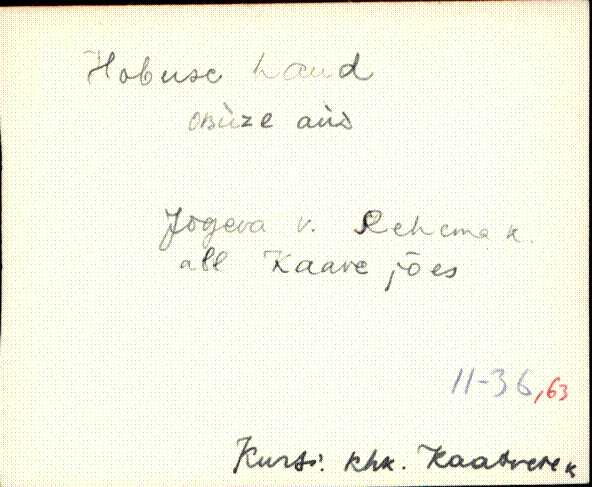 Hobuse haud
obuze aud
Jõgeva v. Rehema k.
all Kaave jões
11-36,63
Kursi khk. Kaavere k